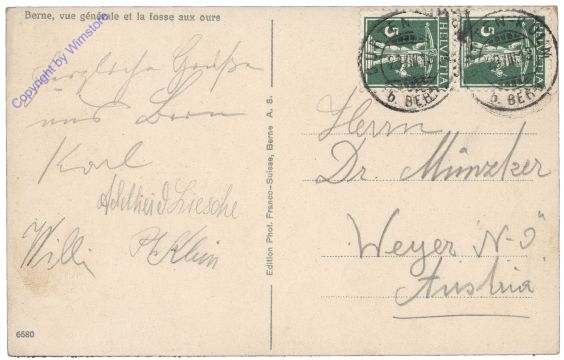 Berne, vue générale et la fosse aux ours
Copyright by Wimstore
Herzliche Grüße
aus Bern
Karl
Adelheid Liesche
Willi P. Klein
Edition Phot. Franco-Suisse, Berne A. S.
6580
5 HELVETIA
5 HELVETIA
b. BER
b. BER
Herrn
Dr. Münzker
Weyer N-Ö
Austria